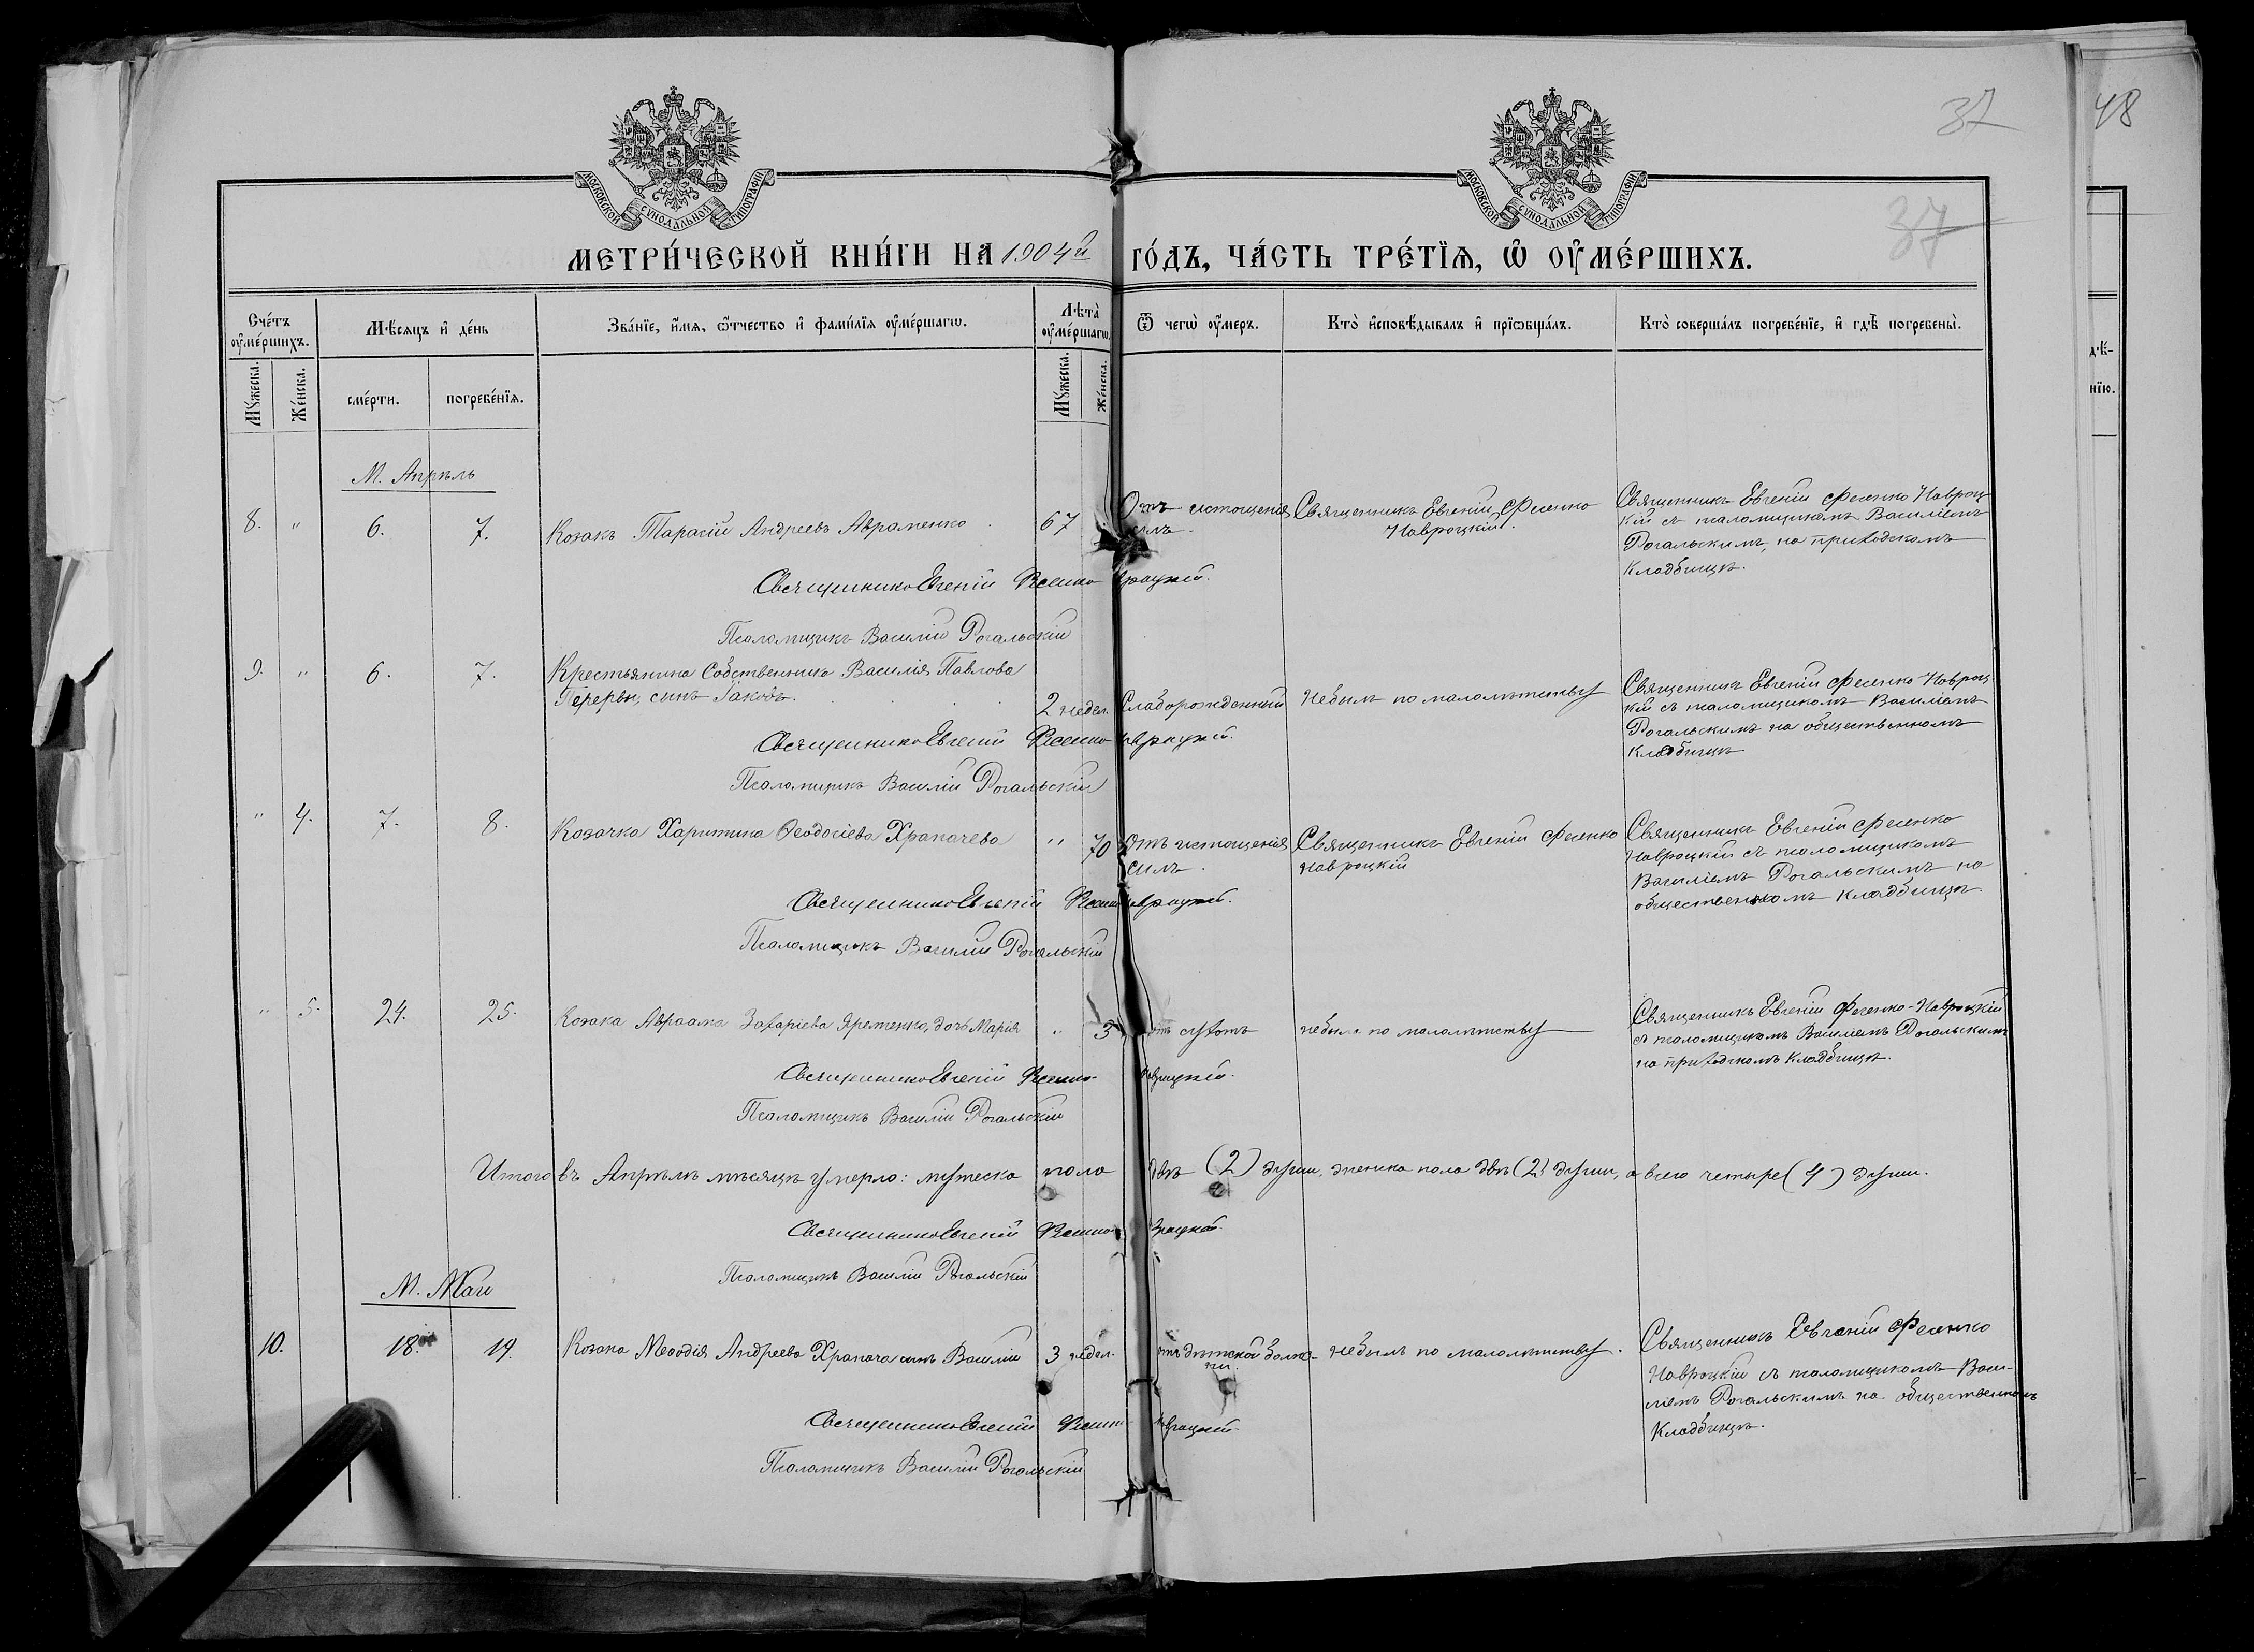 37
48
МОСКОВСКОЙ СѴНОДАЛЬНОЙ ТИПОГРАФІИ
МОСКОВСКОЙ СѴНОДАЛЬНОЙ ТИПОГРАФІИ
37
МЕТРИ́ЧЕСКОЙ КНИ́ГИ НА 1904й ГО́ДЪ, ЧА́СТЬ ТРЕ́ТЇѦ, Ѡ҆ ОУ҆МЕ́РШИХЪ.
Сче́тъ оу҆ме́ршихъ.
Мѣ́сѧцъ и҆ де́нь
Зва́нїе, и҆́мѧ, ѻ҆́тчество и҆ фами́лїѧ оу҆ме́ршагѡ.
Лѣта̀ оу҆ме́ршагѡ.
Ѿ чегѡ̀ оу҆́меръ.
Кто̀ и҆сповѣ́дывалъ и҆ прїѡбща́лъ.
Кто̀ соверша́лъ погребе́нїе, и҆ гдѣ̀ погребены̀.
Мꙋ́жеска.
Же́нска.
сме́рти.
погребе́нїѧ.
Мꙋ́жеска.
Же́нска.
дѣ́-
нїю.
М. Апрѣль
8. " 6. 7. Козакъ Тарасій Андреевъ Авраменко 67 Отъ истощенія силъ. Священникъ Евгеній Фесенко Навроцкій. Священникъ Евгеній Фесенко Навроц
кій съ псаломщикомъ Василіемъ
Рогальскимъ, на приходскомъ
кладбищѣ.
Священникъ Евгеній Фесенко Навроцкій.
Псаломщикъ Василій Рогальскій
9. " 6. 7. Крестьянина Собственника Василія Павлова
Перервы, сынъ Іаковъ. 2 недел. Слаборожденный Небылъ по малолѣтству Священникъ Евгеній Фесенко Навроц
кій съ псаломщикомъ Василіемъ
Рогальскимъ на общественномъ
кладбищѣ
Священникъ Евгеній Фесенко Навроцкій.
Псаломщикъ Василій Рогальскій
" 4. 7. 8. Козачка Харитина Ѳеодосіева Храпачева " 70 Отъ истощенія силъ. Священникъ Евгеній Фесенко Навроцкій Священникъ Евгеній Фесенко
Навроцкій съ псаломщикомъ
Василіемъ Рогальскимъ на
общественномъ кладбищѣ
Священникъ Евгеній Фесенко Навроцкій.
Псаломщикъ Василій Рогальскій
" 5. 24. 25. Козака Авраама Захаріева Яременко, дочь Марія " 3 отъ сухотъ небыла по малолѣтству Священникъ Евгеній Фесенко-Навроцкій
съ псаломщикомъ Василіемъ Рогальскимъ
на приходскомъ кладбищѣ.
Священникъ Евгеній Фесенко Навроцкій.
Псаломщикъ Василій Рогальскій
Итого въ Апрѣлѣ мѣсяцѣ умерло: мужеска пола двѣ (2) души, женска пола двѣ (2) души, а всего четыре (4) души.
Священникъ Евгеній Фесенко Навроцкій.
Псаломщикъ Василій Рогальскій
М. Май
10. 18. 19. Козака Меѳодія Андреева Храпача сынъ Василій 3 недел. отъ дѣтской болѣз-
ни. Небылъ по малолѣтству. Священникъ Евгеній Фесенко
Навроцкій съ псаломщикомъ Васи-
ліемъ Рогальскимъ на общественномъ
кладбищѣ.
Священникъ Евгеній Фесенко Навроцкій.
Псаломщикъ Василій Рогальскій